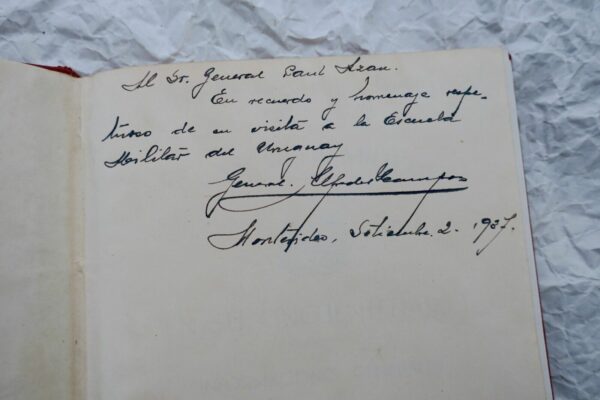 Al Sr. General Paul Azan.
En recuerdo y homenaje respe-
tuoso de su visita a la Escuela
Militar del Uruguay
General. Alfredo Campos
Montevideo, Setiembre. 2. 1937.